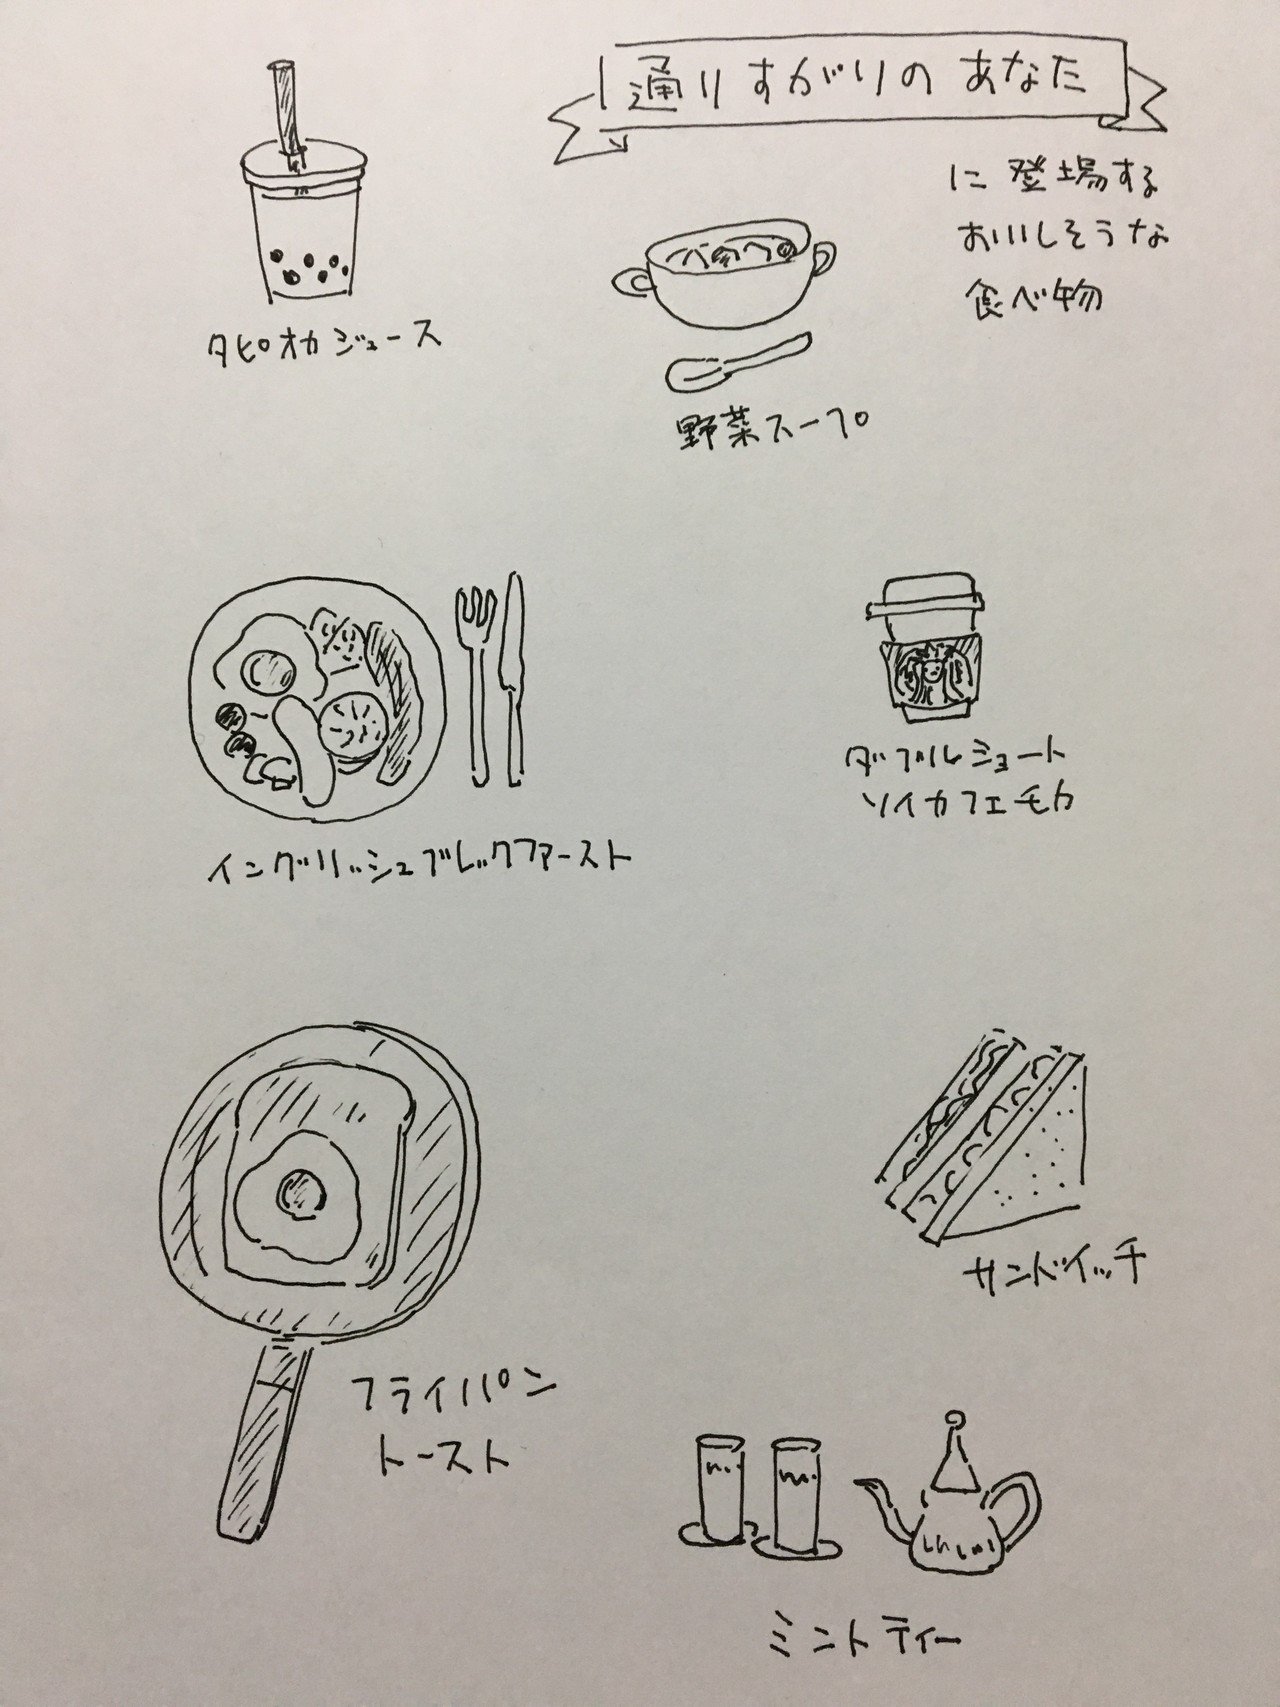 通りすがりのあなた
に登場する
おいしそうな
食べ物
タピオカジュース
野菜スープ
イングリッシュブレックファースト
ダブルショート
ソイカフェモカ
フライパン
トースト
サンドイッチ
ミントティー